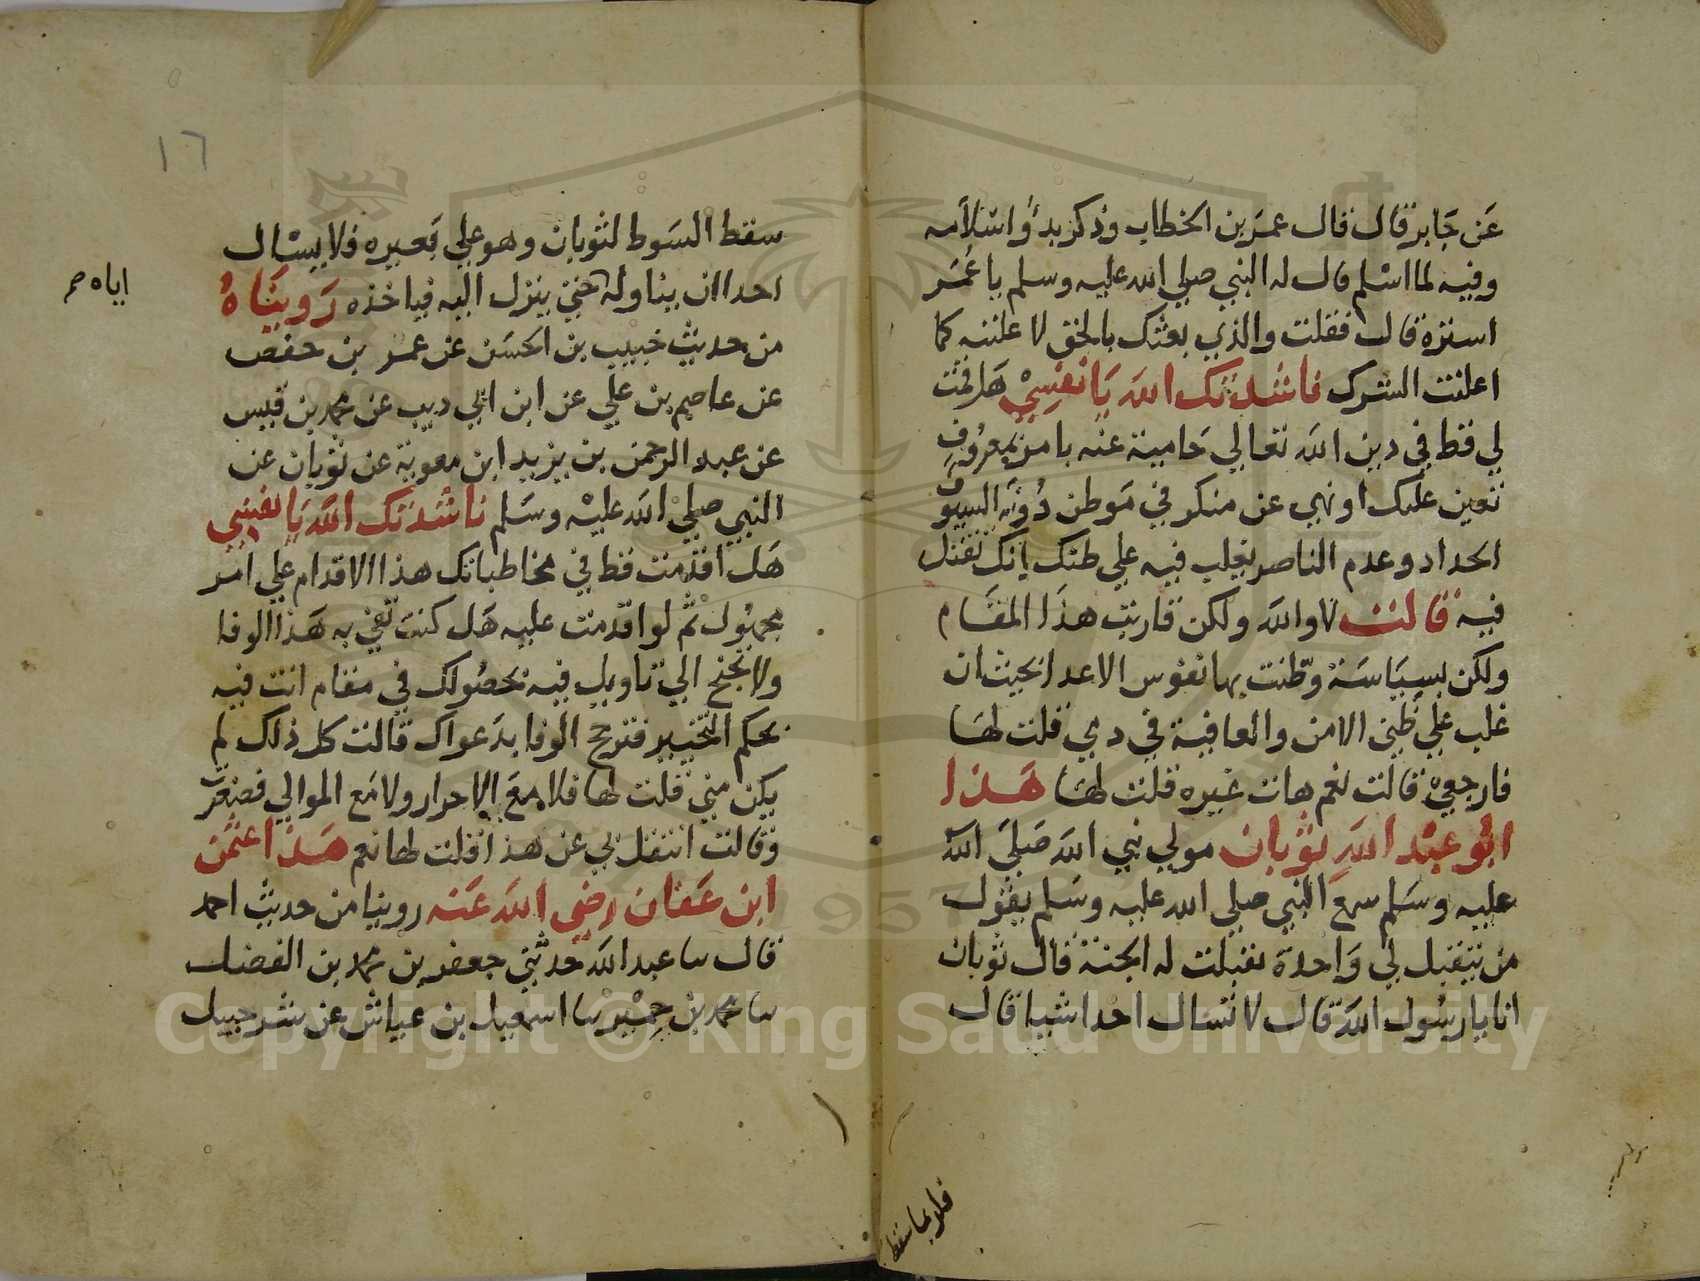 عن جابر قال قال عمر بن الخطاب وذكر بدؤ اسلامه
وفيه لما اسلم قال له النبي صلي الله عليه وسلم يا عمر
استره قال فقلت والذي بعثك بالحق لا علننه كما
اعلنت الشرك ناشدتك الله يا نفسي هل قمت
لي قط في دين الله تعالي حامية عنه بامر بمعروف
تتعين عليك او نهي عن منكر في موطن دونه السيوف
الحداد وعدم الناصر يغلب فيه علي ظنك انك تقتل
فيه قالت لا والله ولكن قاربت هذا المقام
ولكن بسياسة وطنت بها نفوس الاعدا بحيث ان
غلب علي ظني الامن والعافية في دمي قلت لها
فارجعي قالت نعم هات غيره قلت لها هذا
ابو عبد الله ثوبان مولي نبي الله صلي الله
عليه وسلم سمع النبي صلي الله عليه وسلم يقول
من يتقبل لي واحدة تقبلت له الجنة قال ثوبان
انا يا رسول الله قال لا تسال احدا شيا قال
فلربما سقط
١٦
سقط السوط لثوبان وهو علي بعيره فلا يسال
احدا ان يناوله حتي ينزل اليه فياخذه رويناه
اياه صح
من حديث خبيب بن الحسن عن عمر بن حفص
عن عاصم بن علي عن ابن ابي ديب عن محمد بن قيس
عن عبد الرحمن بن يزيد ابن معوية عن ثوبان عن
النبي صلي الله عليه وسلم ناشدتك الله يا نفسي
هل اقدمت قط في مخاطباتك هذا الاقدام علي امر
مجهول ثم لو اقدمت عليه هل كنت تفي به هذا الوفا
ولا تجنح الي تاويل فيه بحصولك في مقام انت فيه
بحكم التخيير فترجح الوفا بدعواك قالت كل ذلك لم
يكن مني قلت لها فلا مع الاحرار ولا مع الموالي فضعت
وقالت انتقل بي عن هذا قلت لها نعم هذا عثمن
ابن عفان رضي الله عنه روينا من حديث احمد
قال سا عبد الله حدثني جعفر بن محمد بن الفضل
سا محمد بن حمير سا اسمعيل بن عياش عن شرحبيل
Copyright © King Saud University
1957